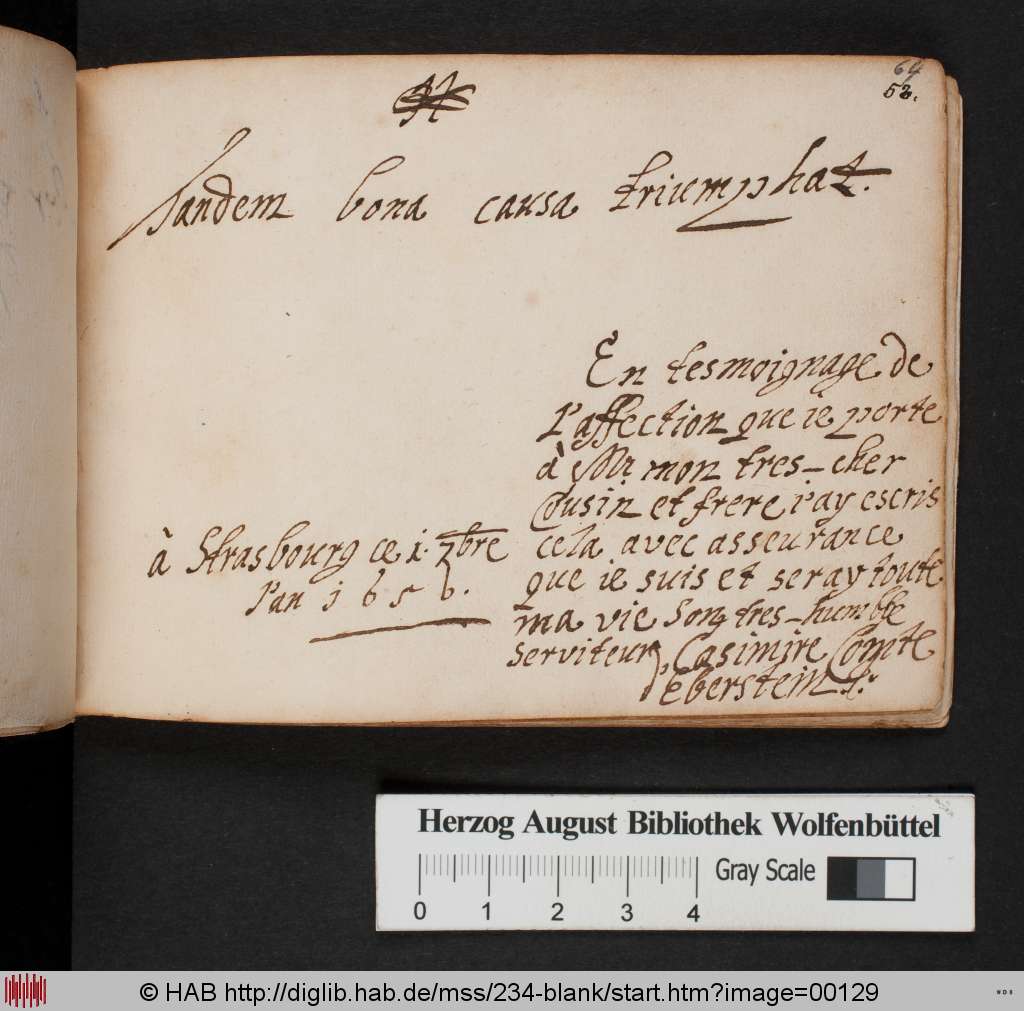 64
52.
Tandem bona causa triumphat.
En tesmoignage de
l'affection que ie porte
à Mr mon tres-cher
Cousin et frere i'ay escris
cela avec asseurance
que ie suis et seray toute
ma vie son tres-humble
serviteur, Casimire Comte
d'Eberstein
à Strasbourg ce 1. 7bre
l'an 1656.
Herzog August Bibliothek Wolfenbüttel
Gray Scale
0 1 2 3 4
© HAB http://diglib.hab.de/mss/234-blank/start.htm?image=00129